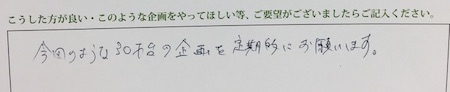 こうした方が良い・このような企画をやってほしい等、ご要望がございましたらご記入ください。
今回のような30才台の企画を定期的にお願いします。